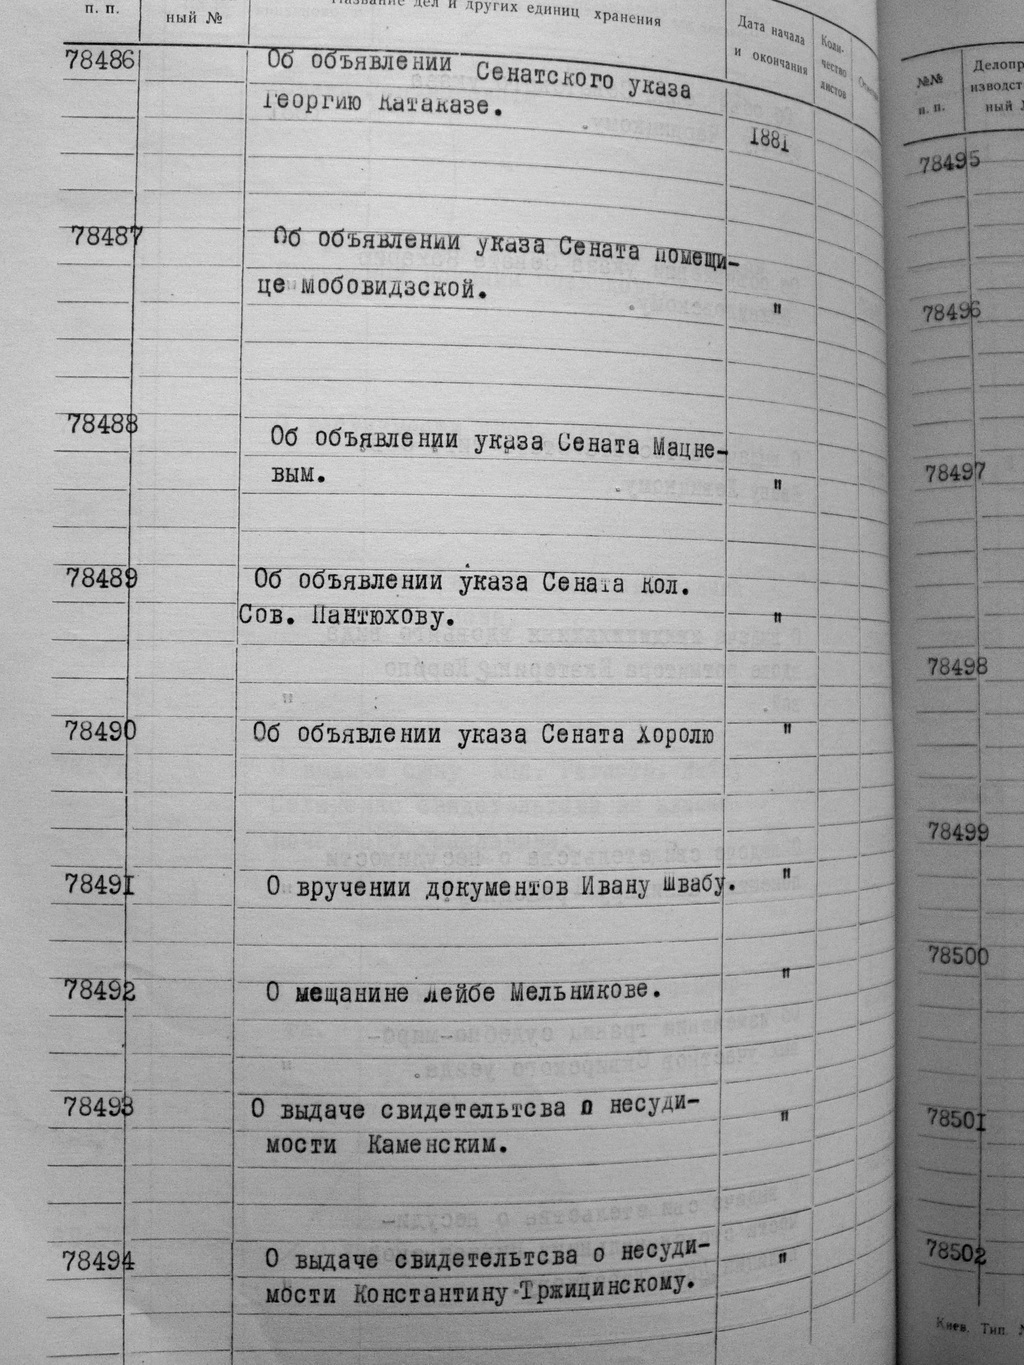 п. п.
ный №
Название дел и других единиц хранения
Дата начала
и окончания
Коли-
чество
листов
78486
Об объявлении Сенатского указа
Георгию Катаказе.
1881
78487
Об объявлении указа Сената помещи-
це мобовидзской.
"
78488
Об объявлении указа Сената Мацне-
вым.
"
78489
Об объявлении указа Сената Кол.
Сов. Пантюхову.
"
78490
Об объявлении указа Сената Хоролю
"
78491
О вручении документов Ивану Швабу.
"
78492
О мещанине Лейбе Мельникове.
"
78493
О выдаче свидетельтсва о несуди-
мости Каменским.
"
78494
О выдаче свидетельтсва о несуди-
мости Константину Тржицинскому.
"
№№
п. п.
Делопр
изводст
ный
78495
78496
78497
78498
78499
78500
78501
78502
Киев. Тип.